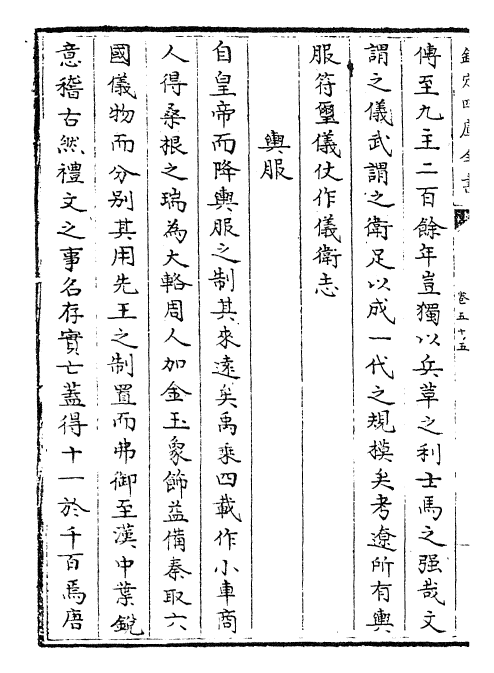 欽定四庫全書
卷五十五
傳至九主二百餘年豈獨以兵革之利士馬之强哉文
謂之儀武謂之衛足以成一代之規模矣考遼所有輿
服符璽儀仗作儀衛志
輿服
自皇帝而降輿服之制其來遠矣禹乘四載作小車商
人得桑根之瑞為大輅周人加金玉象飾益備秦取六
國儀物而分别其用先王之制置而弗御至漢中葉銳
意稽古然禮文之事名存實亡蓋得十一於千百焉唐